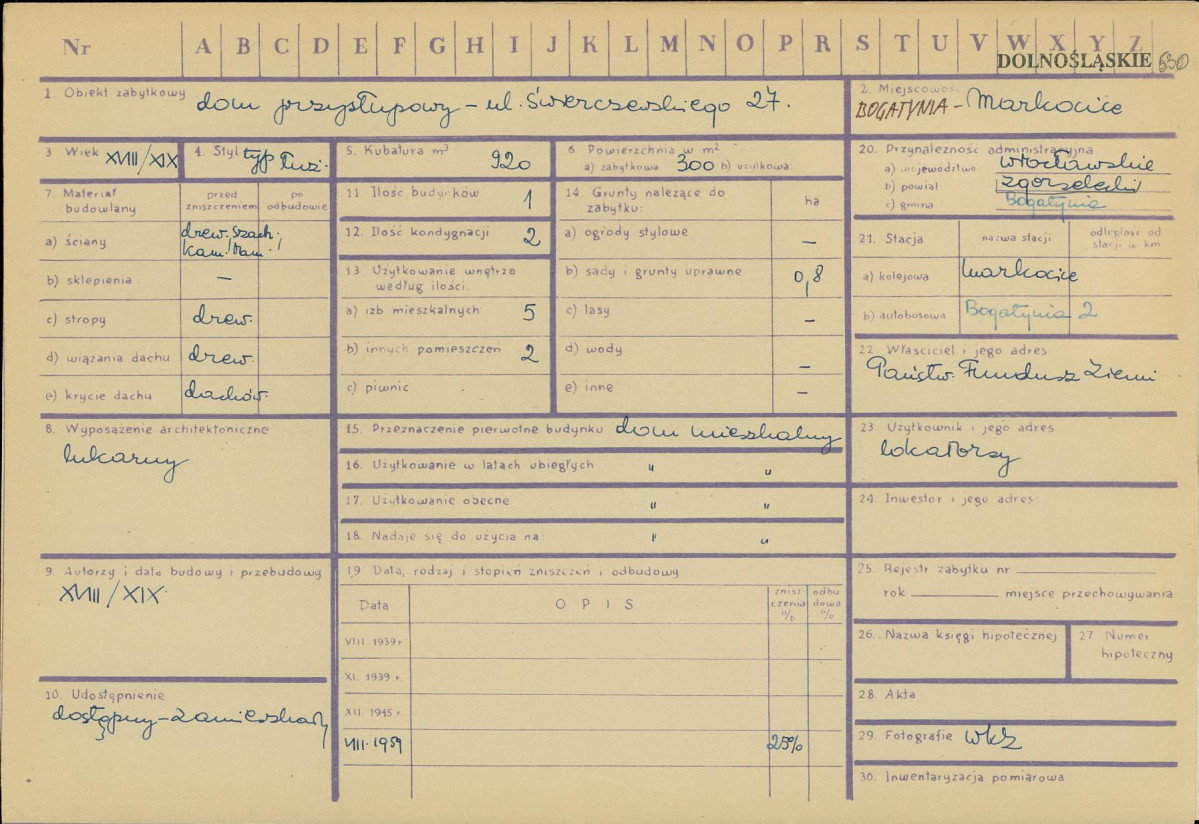 Nr A B C D E F G H I J K L M N O P R S T U V W X Y Z
DOLNOŚLĄSKIE 530
1. Obiekt zabytkowy dom przysłupowy - ul. Świerczewskiego 27.
2. Miejscowość
BOGATYNIA - Markocice
3. Wiek XVIII/XIX
4. Styl typ łuż.
5. Kubatura m³ 920
6. Powierzchnia w m²
a) zabytkowa 300 b) użytkowa:
7. Materiał budowlany
przed zniszczeniem
po odbudowie
a) ściany drew. szach.
kam./
b) sklepienia —
c) stropy drew.
d) wiązania dachu drew.
e) krycie dachu dachów.
8. Wyposażenie architektoniczne
lukarny
9. Autorzy i data budowy i przebudowy
XVIII/XIX
10. Udostępnienie
dostępny - zamieszkały
11 Ilość budynków 1
12. Ilość kondygnacji 2
13 Użytkowanie wnętrza według ilości:
a) izb mieszkalnych 5
b) innych pomieszczeń 2
c) piwnic
14. Grunty należące do zabytku:
ha
a) ogrody stylowe —
b) sady i grunty uprawne 0,8
c) lasy —
d) wody —
e) inne —
15. Przeznaczenie pierwotne budynku dom mieszkalny
16. Użytkowanie w latach ubiegłych " "
17. Użytkowanie obecne " "
18. Nadaje się do użycia na: " "
19 Data, rodzaj i stopień zniszczeń i odbudowy
Data
OPIS
znisz-
czenia
%
odbu
dowa
%
VIII 1939 r.
XI. 1939 r.
XII 1945 r.
VIII. 1959 25%
20. Przynależność administracyjna
a) województwo wrocławskie
b) powiat zgorzelecki
c) gmina Bogatynia
21. Stacja
nazwa stacji
odległość od stacji w km
a) kolejowa Markocice
b) autobusowa Bogatynia 2
22. Właściciel i jego adres
Państw. Fundusz Ziemi
23. Użytkownik i jego adres
lokatorzy
24. Inwestor i jego adres:
25. Rejestr zabytku nr
rok miejsce przechowywania
26. Nazwa księgi hipotecznej
27 Numer hipoteczny
28. Akta
29. Fotografie WKZ
30. Inwentaryzacja pomiarowa